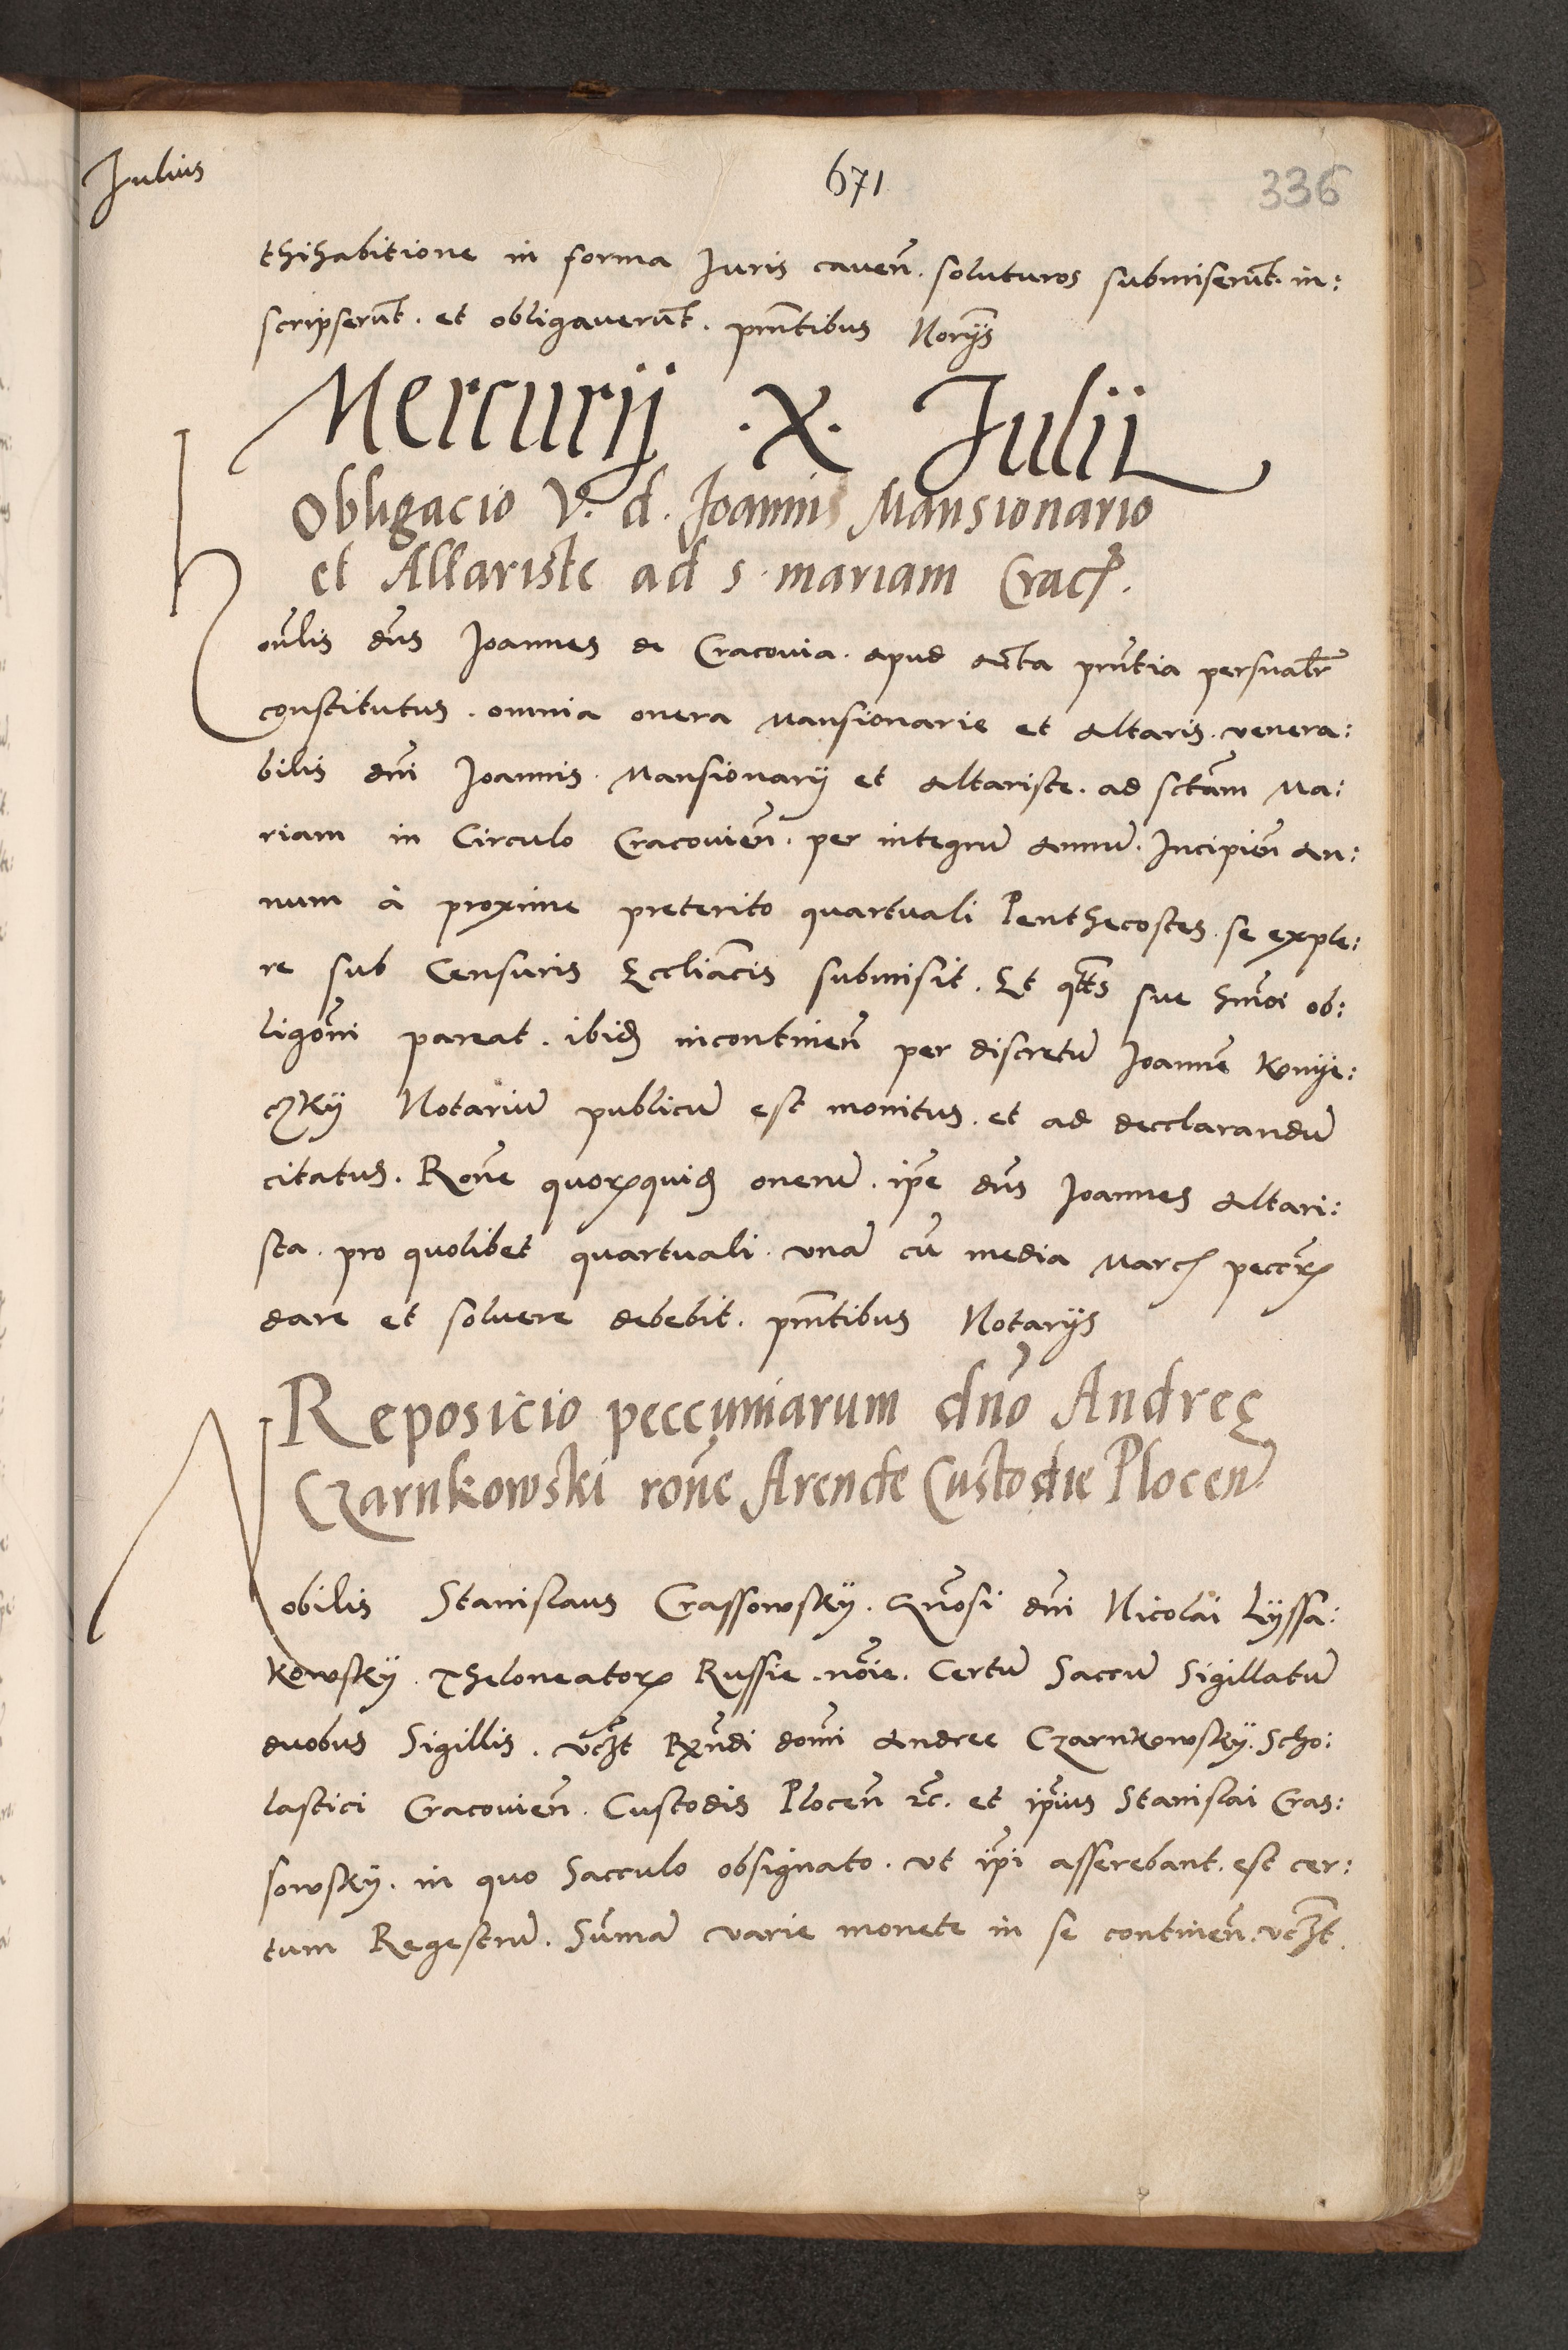 Julius
671
336
thihabitione in forma Juris caueñ. soluturos submiserũt. in:
scripserũt. et obligauerũt. pñtibus Norijs
Mercurij .X. Julii
Obligacio V. d. Joannis Mansionario
et Altariste ad s. mariam Crac.
Honẽlis dñs Joannes de Cracouia. apud acta pñtia personalr̃
constitutus. omnia onera Mansionarie et altaris. venera:
bilis dñi Joannis. Mansionarij et altariste. ad sctãm Ma:
riam in Circulo Cracouieñ. per integrũ annũ. Incipieñ an:
num à proxime preterito quartuali Penthecostes. se exple:
re sub Censuris Eccliãcis submisit. Et qtẽs sue hmõi ob:
ligõni pareat. ibid incontineñ per discretũ Joannẽ Konye:
czky Notariũ publicũ est monitus. et ad decclarandũ
citatus. Rõne quorꝝquid onerũ. ip̃e dñs Joannes altari:
sta. pro quolibet quartuali. vnã cũ media Marc peccr̃
dare et soluere debebit. pñtibus Notarijs
Reposicio peccuniarum dño Andreę
Czarnkowski rõne Arende Custodie Ploceñ
Nobilis Stanislaus Crassowsky. Gñosi dñi Nicolai Lyssa:
kowsky. Theloneatorꝝ Russie. nõie. Certũ Saccũ Sigillatũ
duobus Sigillis. vcꝫt Rñdi domĩ andree Czarnkowsky. Scho:
lastici Cracouieñ. Custodis Ploceñ ꝛc. et ip̃ius Stanislai Cras:
sowsky. in quo Sacculo obsignato. vt ip̃i asserebant. est cer:
tum Regestrũ. Sũmã varie monete in se contineñ. vcꝫt.